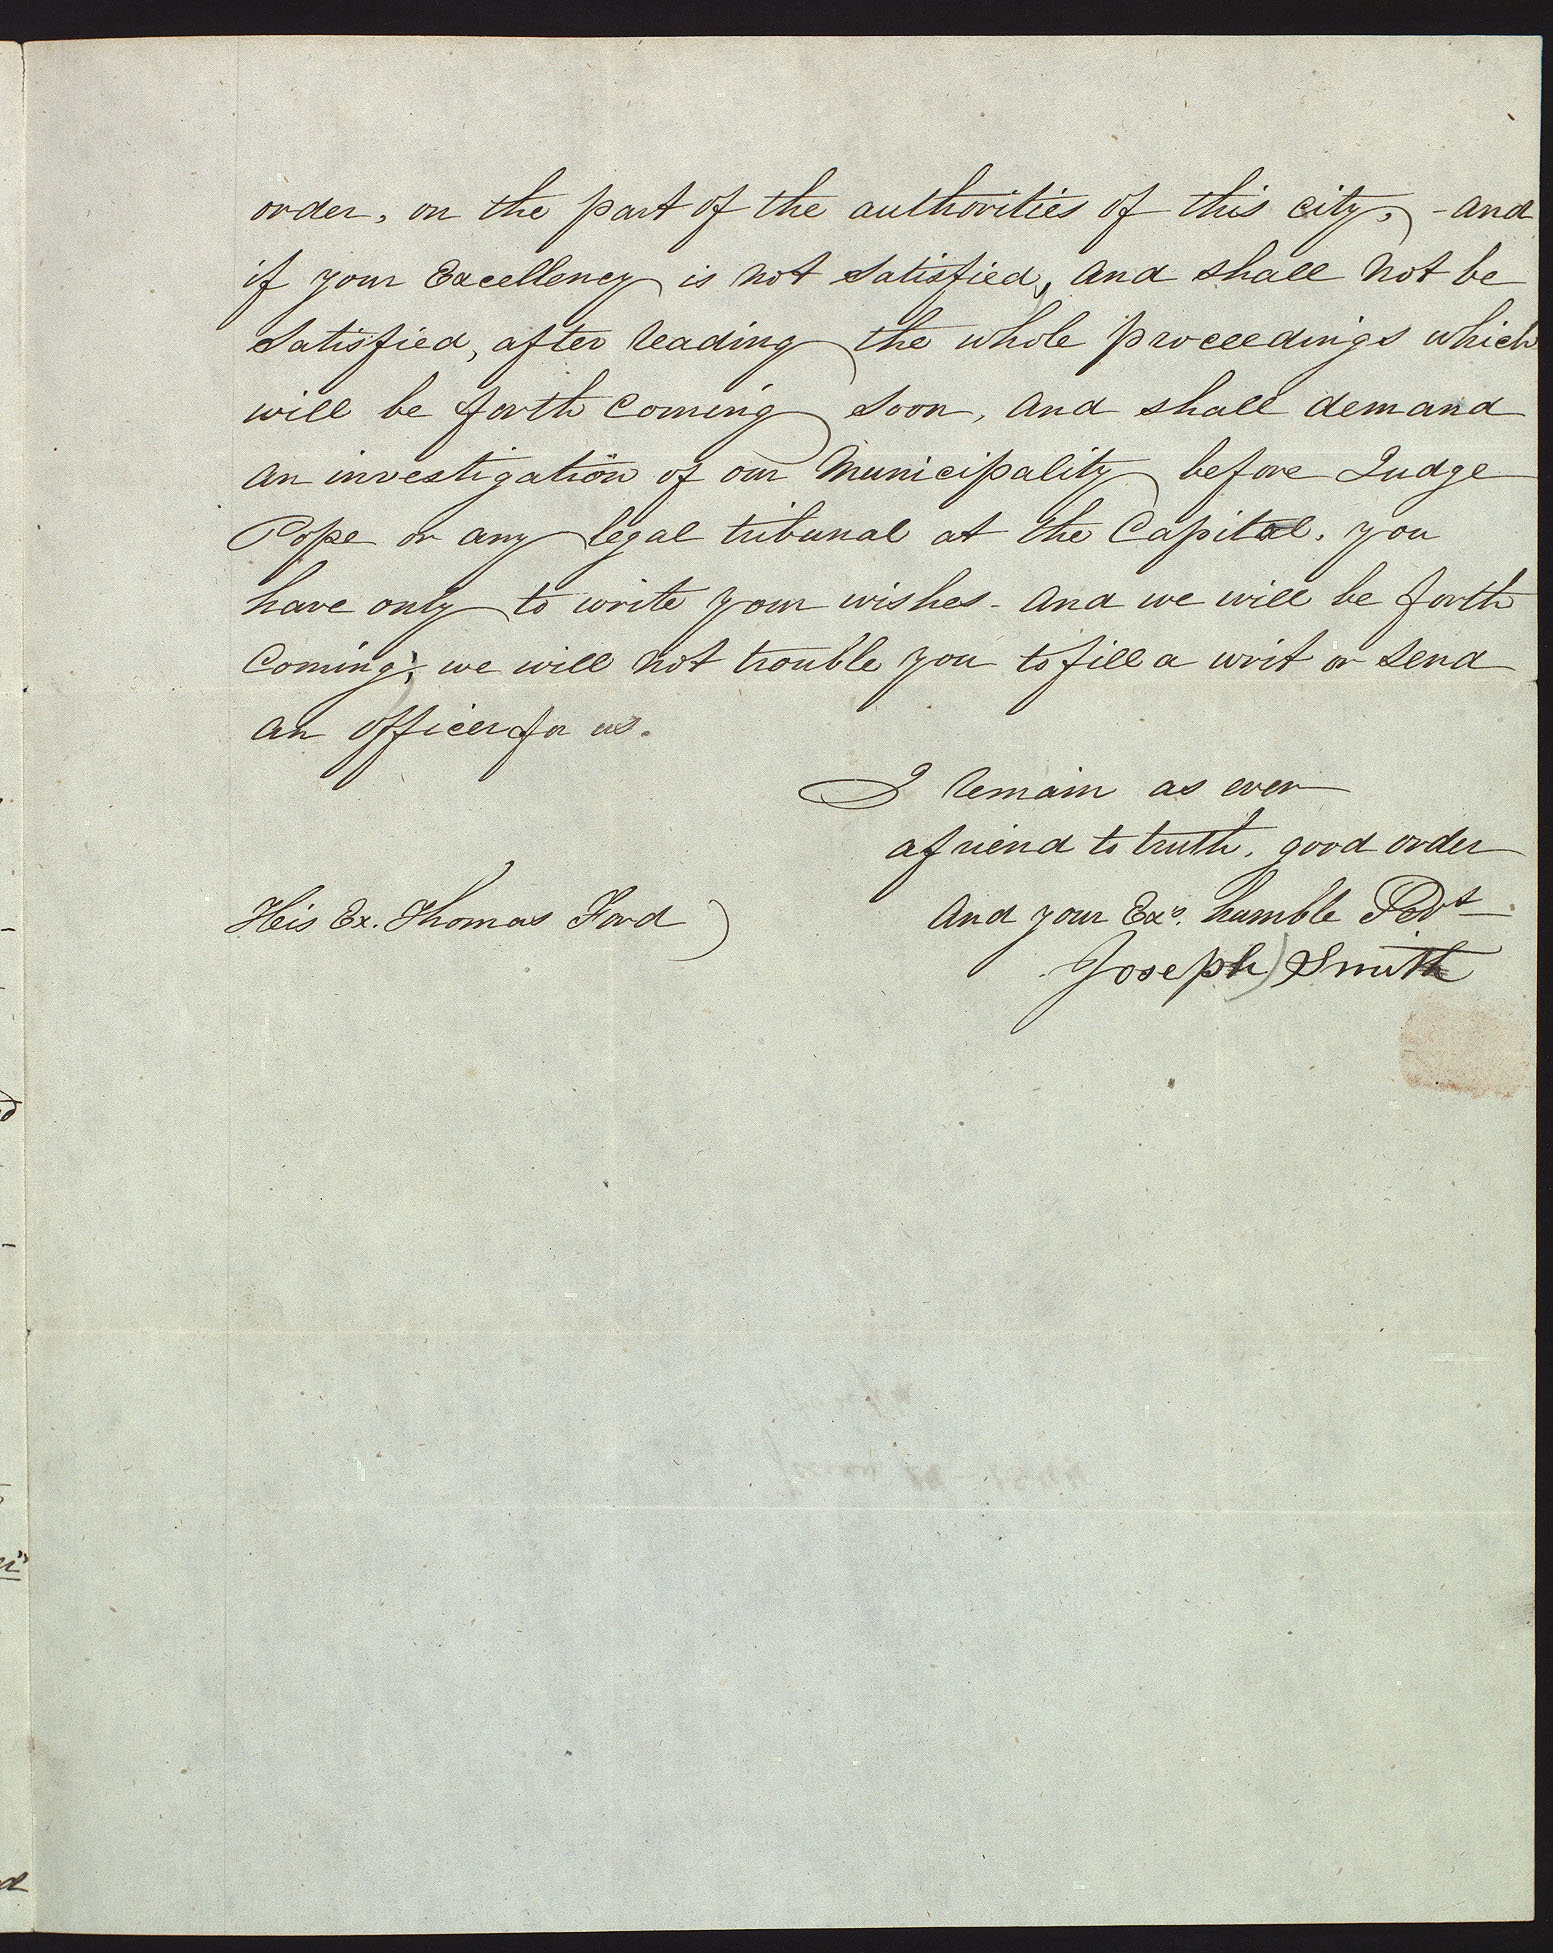 order, on the part of the authorities of this city, - and
if your Excellency is not satisfied, and shall not be
satisfied, after reading the whole proceedings which
will be forth coming soon, and shall demand
an investigation of our Municipality before Judge
Pope or any legal tribunal at the Capital. you
have only to write your wishes - and we will be forth
coming; we will not trouble you to fill a writ or send
an officer for us.
I remain as ever
a friend to truth, good order
His Ex. Thomas Ford
and your Exs. humble Servt
Joseph Smith